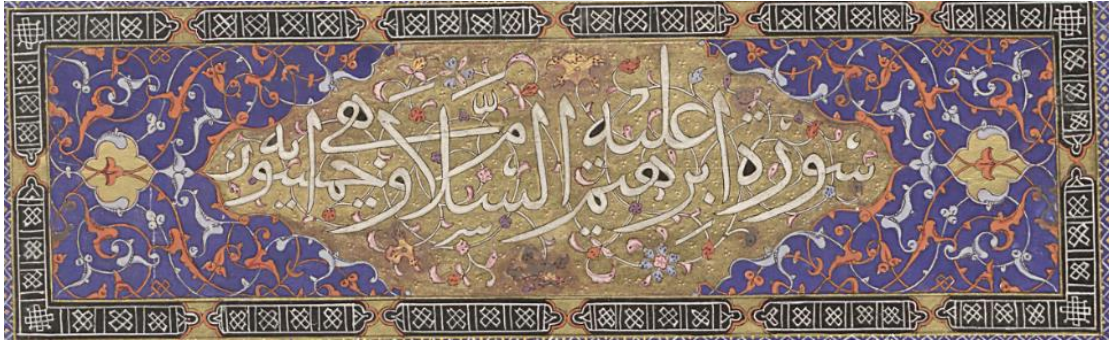 سورة ابرهيم عليه السلام وهى خمسون ايه